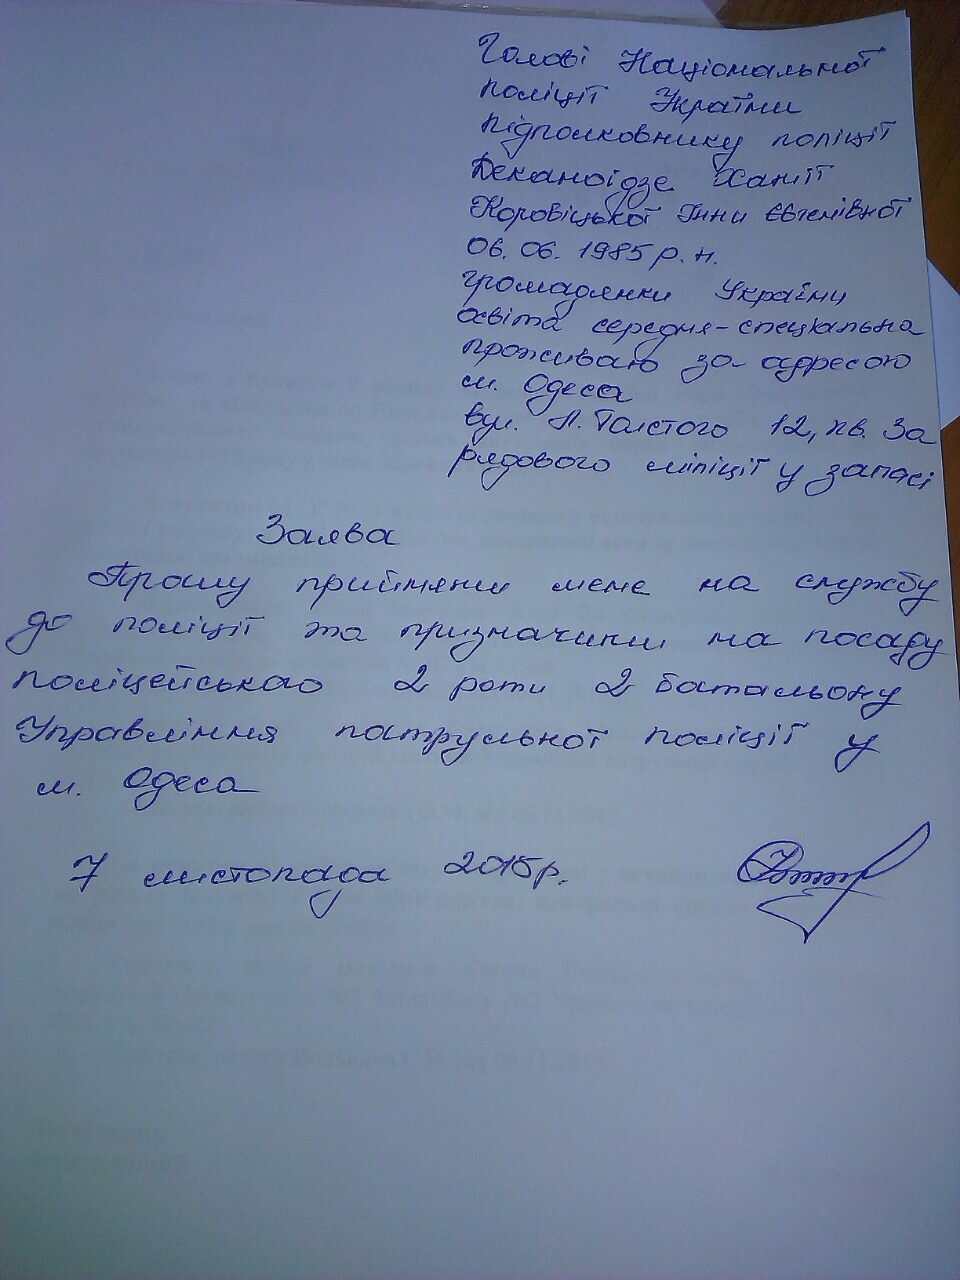 Голові Національної
поліції України
підполковнику поліції
Деканоідзе Хатії
Коровіцької Інни Євгенівної
06. 06. 1985 р. н.
громадянки України
освіта середня-спеціальна
проживаю за адресою
м. Одеса
вул. Л. Толстого 12, кв. 3а
рядового міліції у запасі
Заява
Прошу прийняти мене на службу
до поліції та призначити на посаду
поліцейського 2 роти 2 батальону
Управління патрульної поліції у
м. Одеса
7 листопада 2015р.